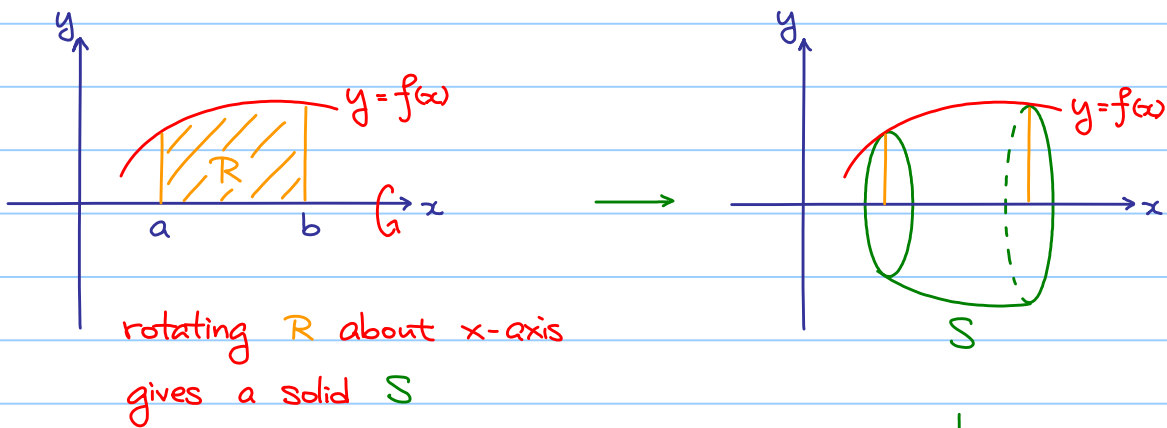 y
y = f(x)
R
x
a
b
rotating R about x-axis
gives a solid S
y
y = f(x)
x
S